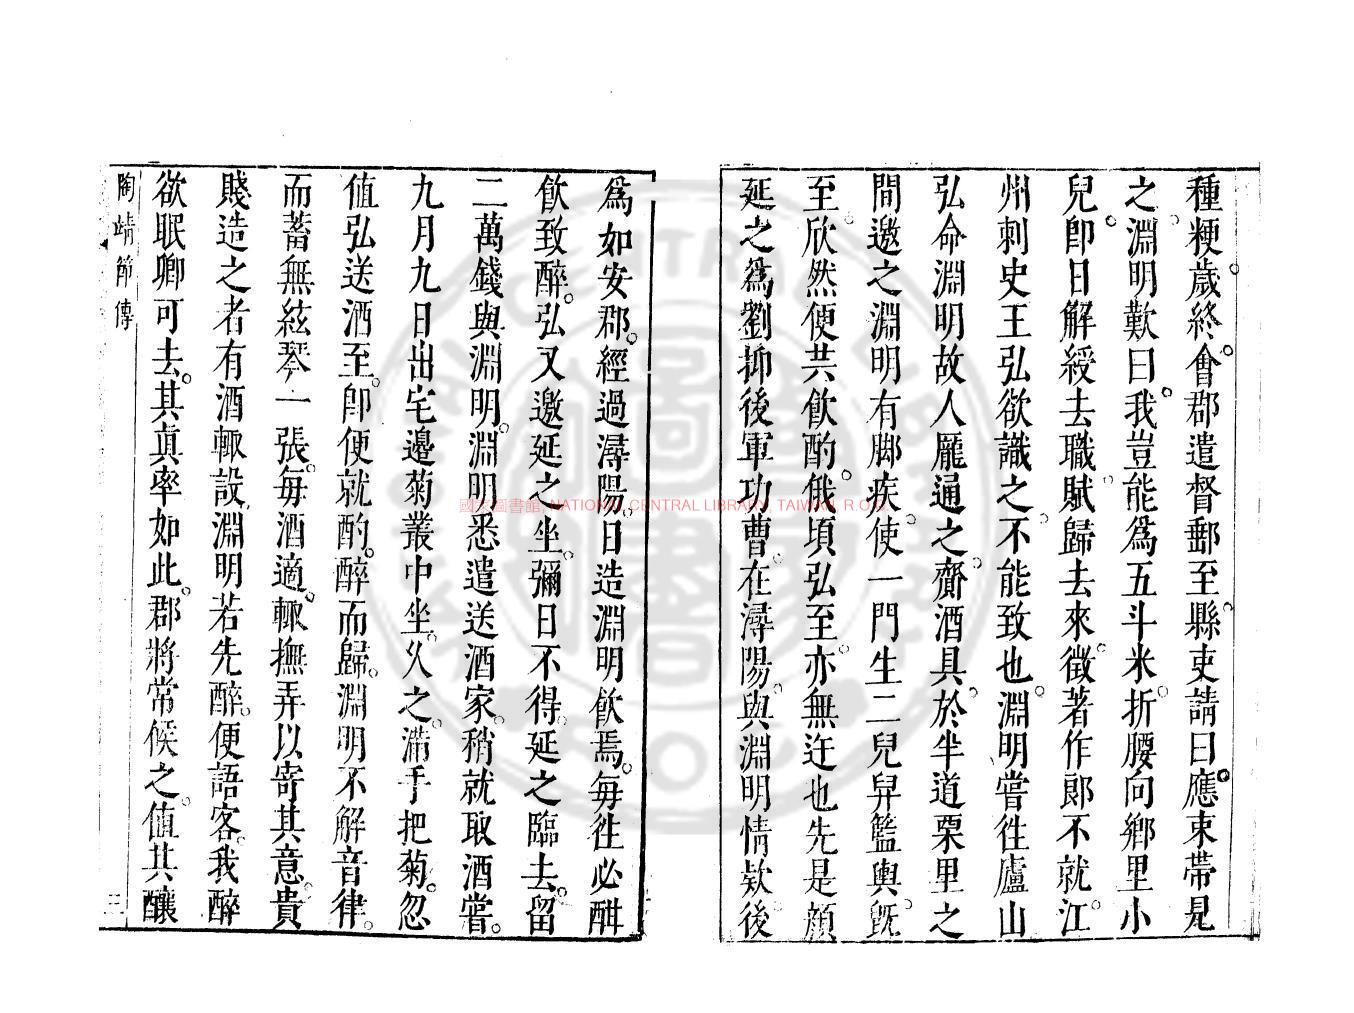 種粳歲終會郡遣督郵至縣吏請曰應束帶見
之淵明歎曰我豈能爲五斗米折腰向鄉里小
兒卽日解綬去職賦歸去來徵著作郎不就江
州刺史王弘欲識之不能致也淵明嘗徃廬山
弘命淵明故人龐通之齎酒具於半道栗里之
間邀之淵明有脚疾使一門生二兒舁籃輿旣
至欣然便共飮酌俄頃弘至亦無迕也先是顔
延之爲劉抑後軍功曹在潯陽與淵明情欵後
爲如安郡經過潯陽日造淵明飮焉每徃必酣
飮致醉弘又邀延之坐彌日不得延之臨去留
二萬錢與淵明淵明悉遣送酒家稍就取酒嘗
九月九日出宅邊菊叢中坐久之滿手把菊忽
值弘送酒至卽便就酌醉而歸淵明不解音律
而蓄無絃琴一張每酒適輙撫弄以寄其意貴
賤造之者有酒輙設淵明若先醉便語客我醉
欲眠卿可去其眞率如此郡將常候之值其釀
陶靖節傳
三
國家圖書館, NATIONAL CENTRAL LIBRARY, TAIWAN, R.O.C.